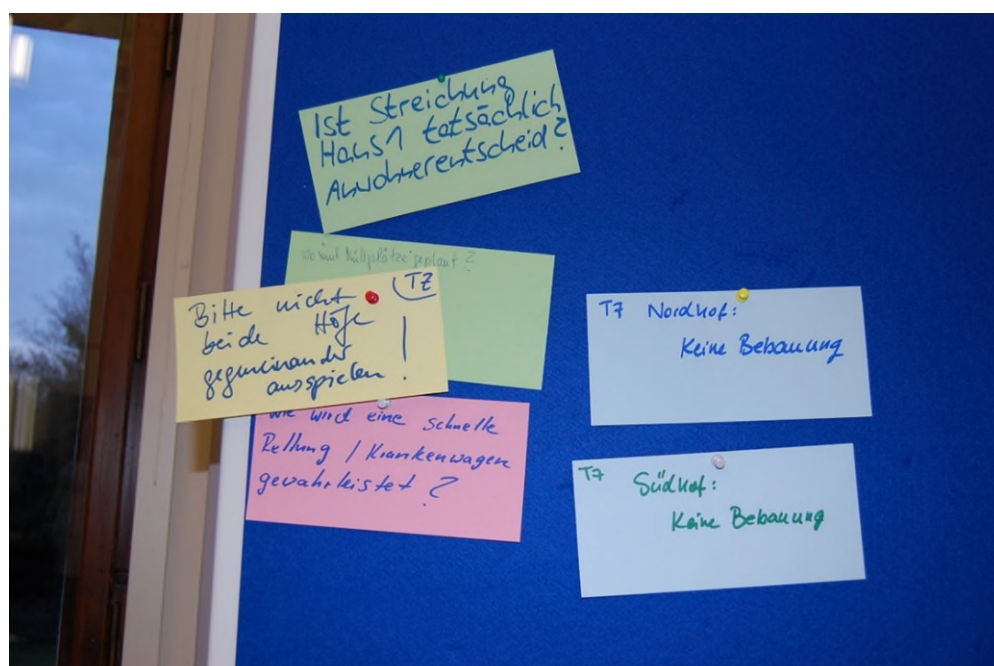 Ist Streichung
Haus 1 tatsächlich
Anwohnerentscheid?
wo sind Müllplätze geplant?
T7
Bitte nicht
beide Höfe
gegeneinander
ausspielen!
Wie wird eine schnelle
Rettung / Krankenwagen
gewährleistet?
T7 Nordhof:
Keine Bebauung
T7 Südhof:
Keine Bebauung